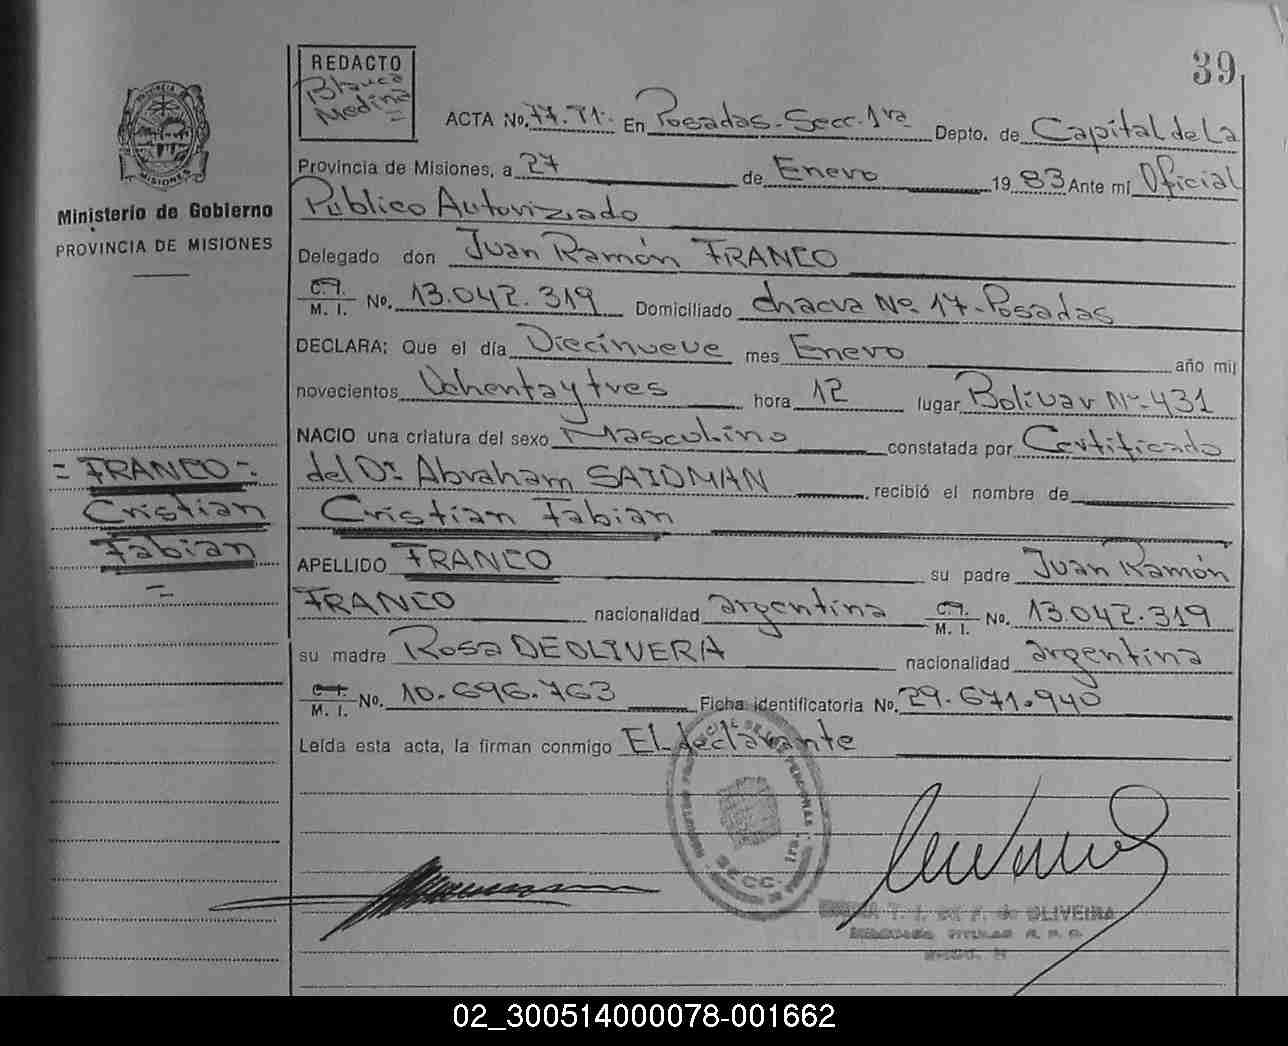 39
REDACTO
Blanca
Medina
ACTA No. 77.T1. En Posadas-Secc. 1ra Depto. de Capital de La
Provincia de Misiones, a 27 de Enero 1983 Ante mí Oficial
Público Autorizado
PROVINCIA DE
MISIONES
Ministerio de Gobierno
PROVINCIA DE MISIONES
Delegado don Juan Ramón FRANCO
C.I.
M. I. No. 13.042.319 Domiciliado chacra Nº 17-Posadas
DECLARA: Que el día Diecinueve mes Enero año mil
novecientos Ochenta y tres hora 12 lugar Bolívar Nº 431
NACIO una criatura del sexo Masculino constatada por Certificado
del Dr. Abraham SAIDMAN recibió el nombre de
Cristian Fabian
= FRANCO =
Cristian
Fabian
=
APELLIDO FRANCO su padre Juan Ramón
FRANCO nacionalidad argentina C.I. M. I. No. 13.042.319
su madre Rosa DEOLIVERA nacionalidad argentina
C.I.
M. I. No. 10.696.763 Ficha identificatoria No. 29.671.940
Leída esta acta, la firman conmigo El declarante
SECC. 1ra.
T. I. de F. de OLIVEIRA
02_300514000078-001662